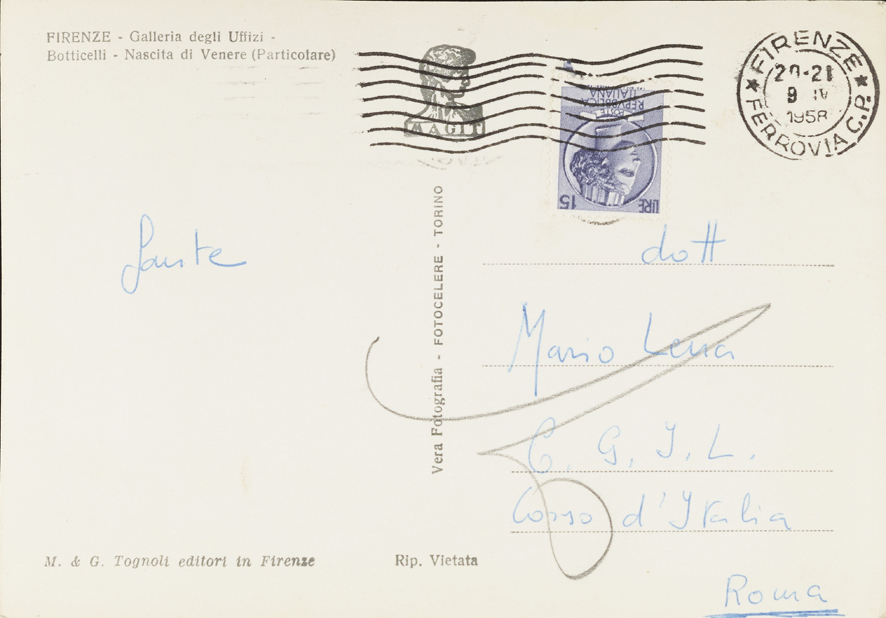 FIRENZE - Galleria degli Uffizi -
Botticelli - Nascita di Venere (Particolare)
MAGIT
REPVBBLICA
ITALIANA
POSTE
LIRE 15
FIRENZE
20-21
9 IV
1958
FERROVIA C.P.
Sante
dott
Mario Lena
C. G. I. L.
Corso d'Italia
Roma
Vera Fotografia - FOTOCELERE - TORINO
M. & G. Tognoli editori in Firenze
Rip. Vietata